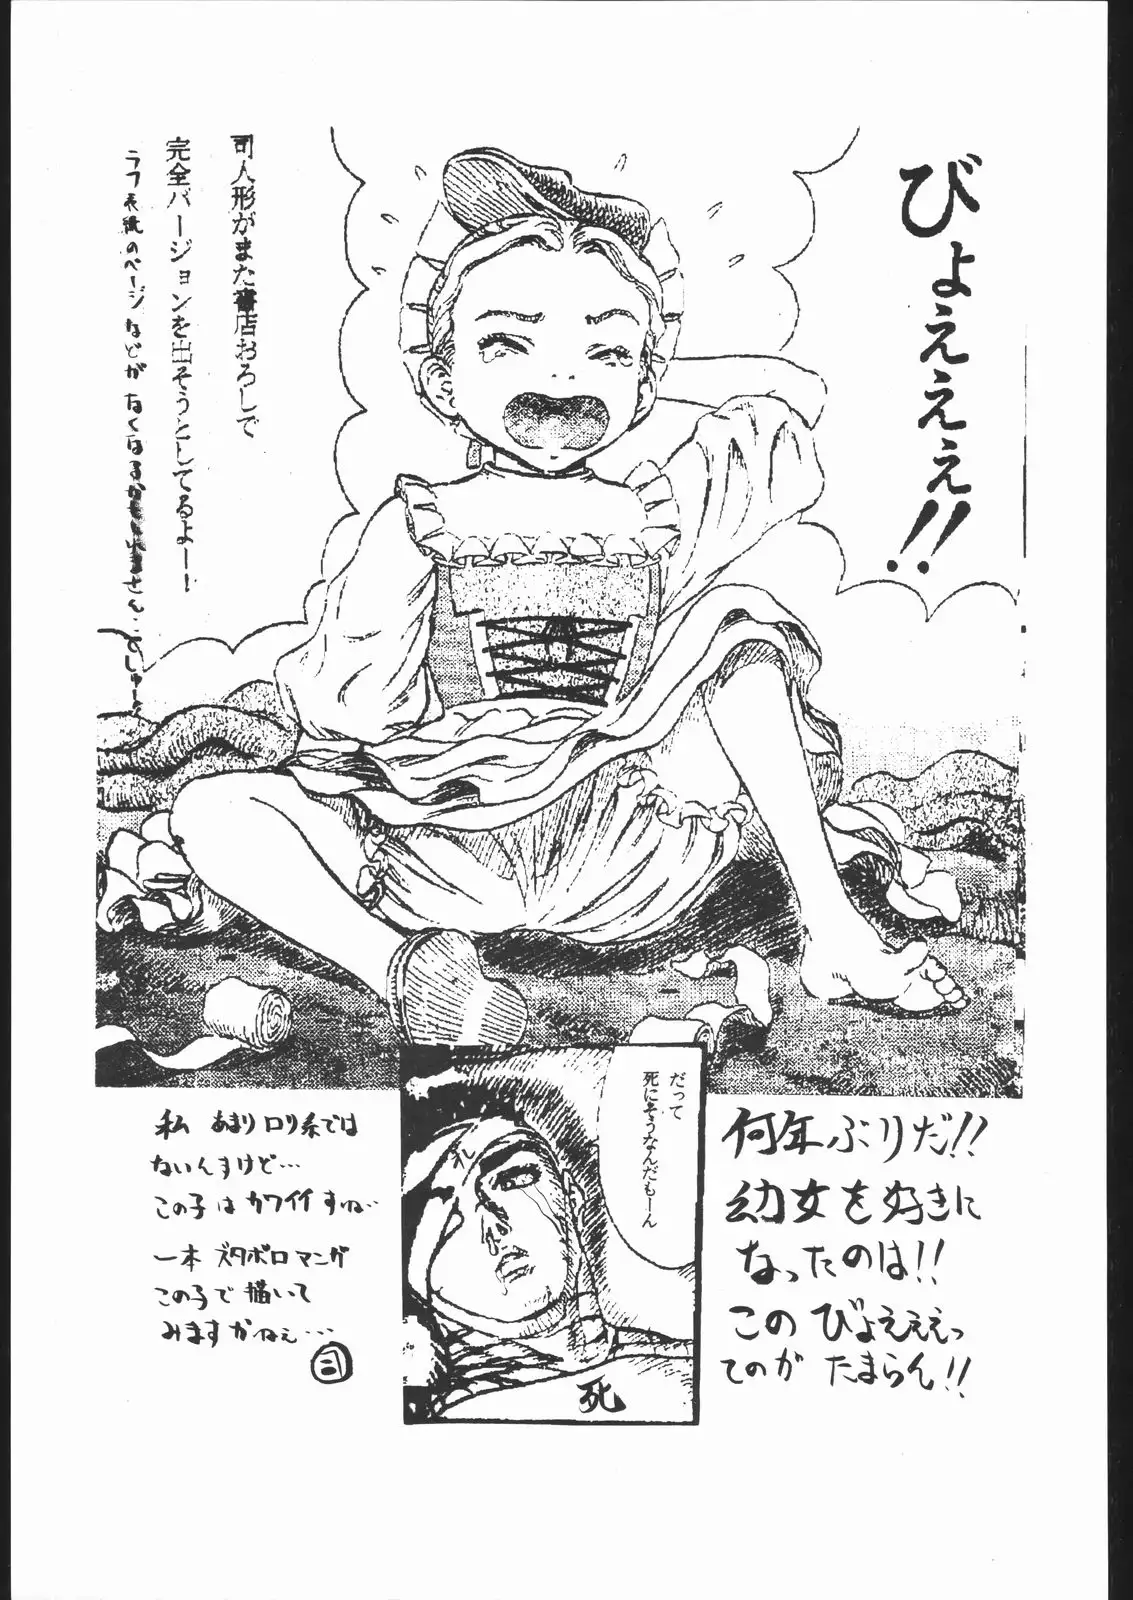 びょえええ!!
司人形がまた書店おろしで
完全バージョンを出そうとしてるよー!
ラフ表紙のページなどがなくなるかも
さん…でしゅー。
だって
死にそうなんだもーん
死
何年ぶりだ!!
幼女を好きに
なったのは!!
この びょえええっ
てのが たまらん!!
私 あまりロリ系では
ないんすけど…
この子は カワイイ すね…
一本 ズタボロマンガ
この子で 描いて
みますかねぇ…